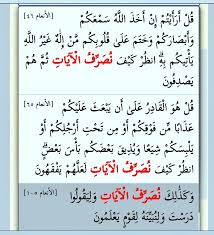 قُلْ أَرَأَيْتُمْ إِنْ أَخَذَ اللَّهُ سَمْعَكُمْ [الأنعام ٤٦]
وَأَبْصَارَكُمْ وَخَتَمَ عَلَىٰ قُلُوبِكُم مَّنْ إِلَٰهٌ غَيْرُ اللَّهِ
يَأْتِيكُم بِهِ ۗ انظُرْ كَيْفَ نُصَرِّفُ الْآيَاتِ ثُمَّ هُمْ
يَصْدِفُونَ
قُلْ هُوَ الْقَادِرُ عَلَىٰ أَن يَبْعَثَ عَلَيْكُمْ [الأنعام ٦٥]
عَذَابًا مِّن فَوْقِكُمْ أَوْ مِن تَحْتِ أَرْجُلِكُمْ أَوْ
يَلْبِسَكُمْ شِيَعًا وَيُذِيقَ بَعْضَكُم بَأْسَ بَعْضٍ ۗ
انظُرْ كَيْفَ نُصَرِّفُ الْآيَاتِ لَعَلَّهُمْ يَفْقَهُونَ
وَكَذَٰلِكَ نُصَرِّفُ الْآيَاتِ وَلِيَقُولُوا [الأنعام ١٠٥]
دَرَسْتَ وَلِنُبَيِّنَهُ لِقَوْمٍ يَعْلَمُونَ